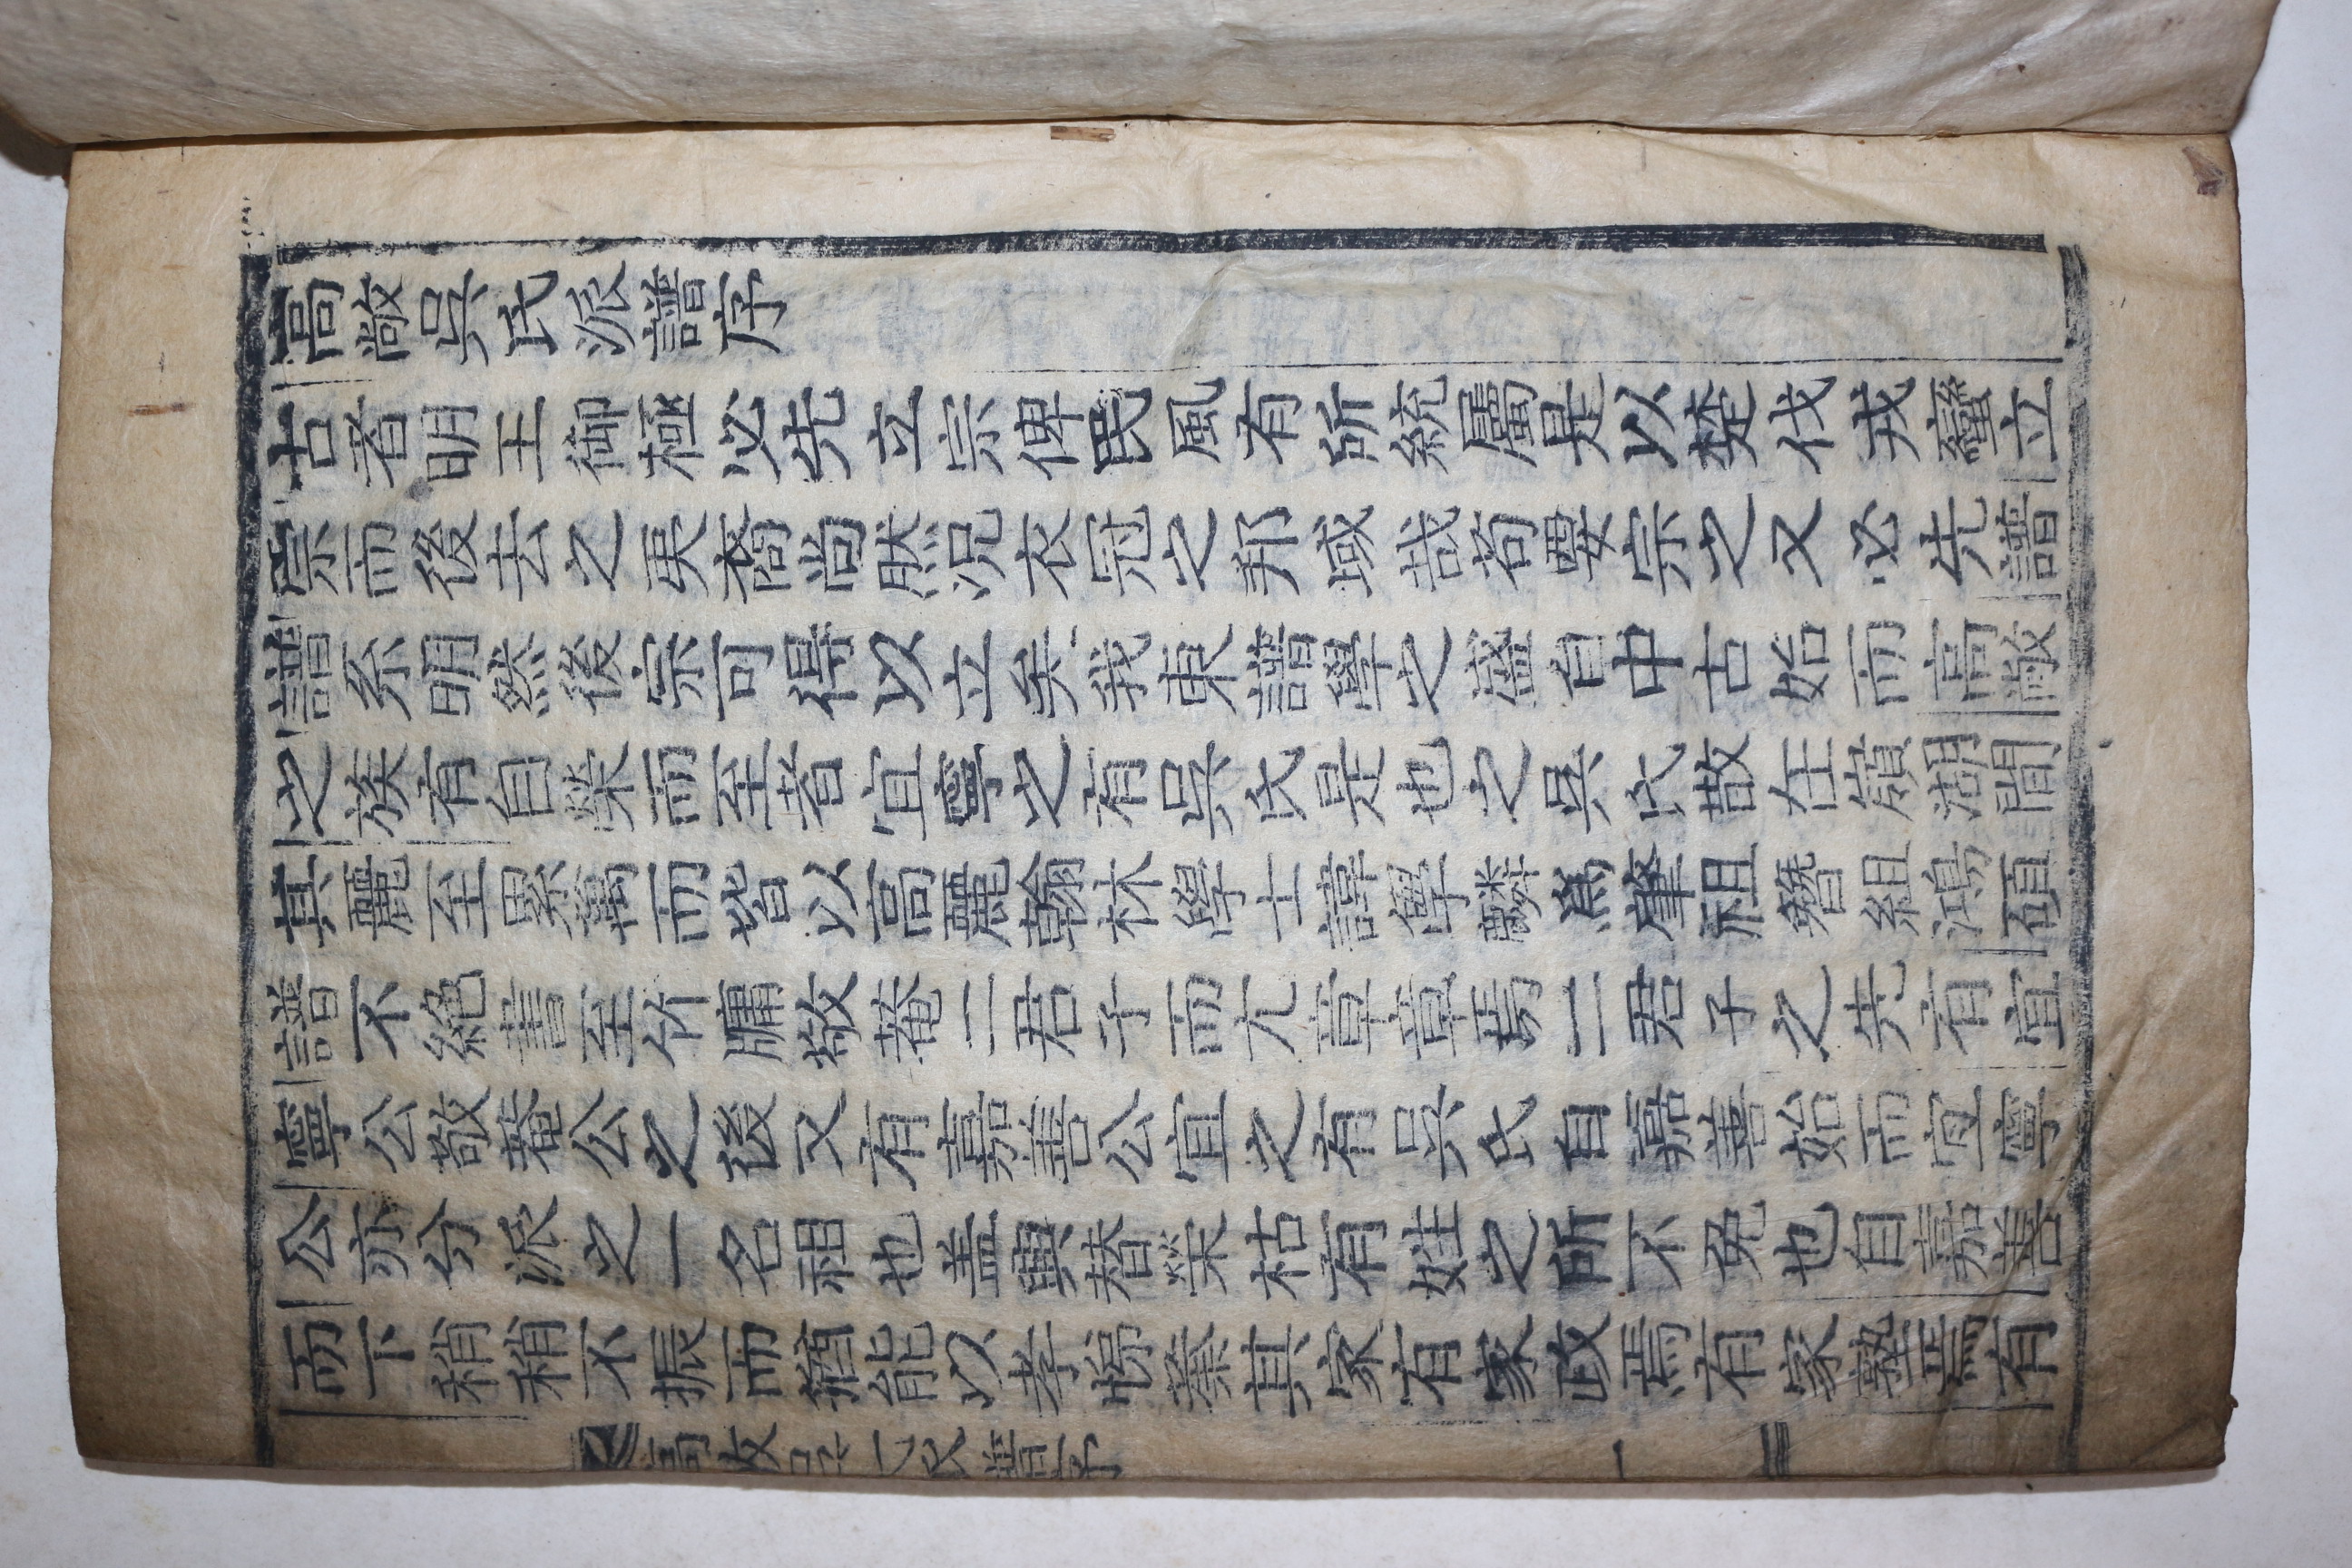 高敞吳氏派譜序
古者明王御極必先立宗俾民風有所統屬是以楚伐戎蠻立
宗而後去之夷裔尚然況衣冠之邦域哉苟要宗之又必先譜
譜系明然後宗可得以立矣我東譜學之盛自中古始而高敞
之族有自榮而至者宜寧之有吳氏是也之吳氏散在嶺湖間
其麗至累萬而皆以高麗翰林學士諱學麟爲肇祖簪組鴻碩
譜不絶書至竹牖敬菴二君子而尤章章焉二君子之先有宜
寧公敬菴公之後又有嘉善公宜之有吳氏自嘉善始而宜寧
公亦分派之一名祖也盖興替榮枯有姓之所不免也自嘉善
而下稍稍不振而猶能以孝悌業其家有家政焉有家塾焉有
高敞吳氏派譜序 一